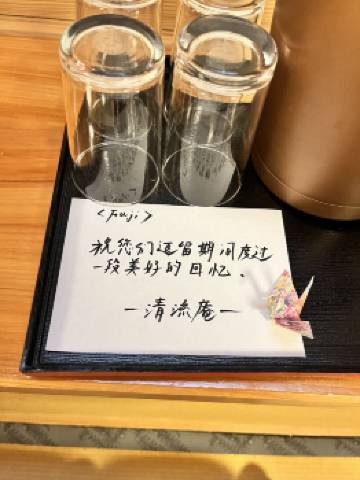 <Fuji>
祝您们逗留期间度过
一段美好的回忆。
－清流庵－